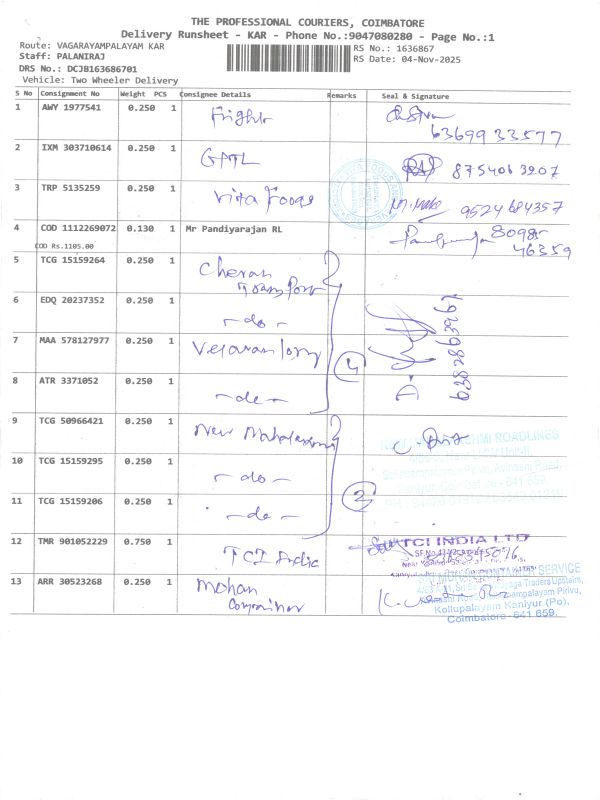 THE PROFESSIONAL COURIERS, COIMBATORE
Delivery Runsheet - KAR - Phone No.:9047080280 - Page No.:1
Route: VAGARAYAMPALAYAM KAR
RS No.: 1636867
Staff: PALANIRAJ
RS Date: 04-Nov-2025
DRS No.: DCJB163686701
Vehicle: Two Wheeler Delivery
S No Consignment No Weight PCS Consignee Details Remarks Seal & Signature
1 AWY 1977541 0.250 1
6369933577
2 IXM 303710614 0.250 1 GATL 8754063207
3 TRP 5135259 0.250 1 Vita Foods 9524684357
4 COD 1112269072 0.130 1 Mr Pandiyarajan RL 80985
46359
COD Rs.1105.00
5 TCG 15159264 0.250 1 Cheran
Transport
6 EDQ 20237352 0.250 1 -do-
6382863967
7 MAA 578127977 0.250 1
4
8 ATR 3371052 0.250 1 -do-
9 TCG 50966421 0.250 1 New
10 TCG 15159295 0.250 1 -do-
11 TCG 15159206 0.250 1 -do-
3
12 TMR 901052229 0.750 1 TCI India
TCI INDIA LTD
13 ARR 30523268 0.250 1 Mohan
Container
CONTAINER SERVICE
Kollupalayam Kaniyur (Po),
Coimbatore - 641 659.